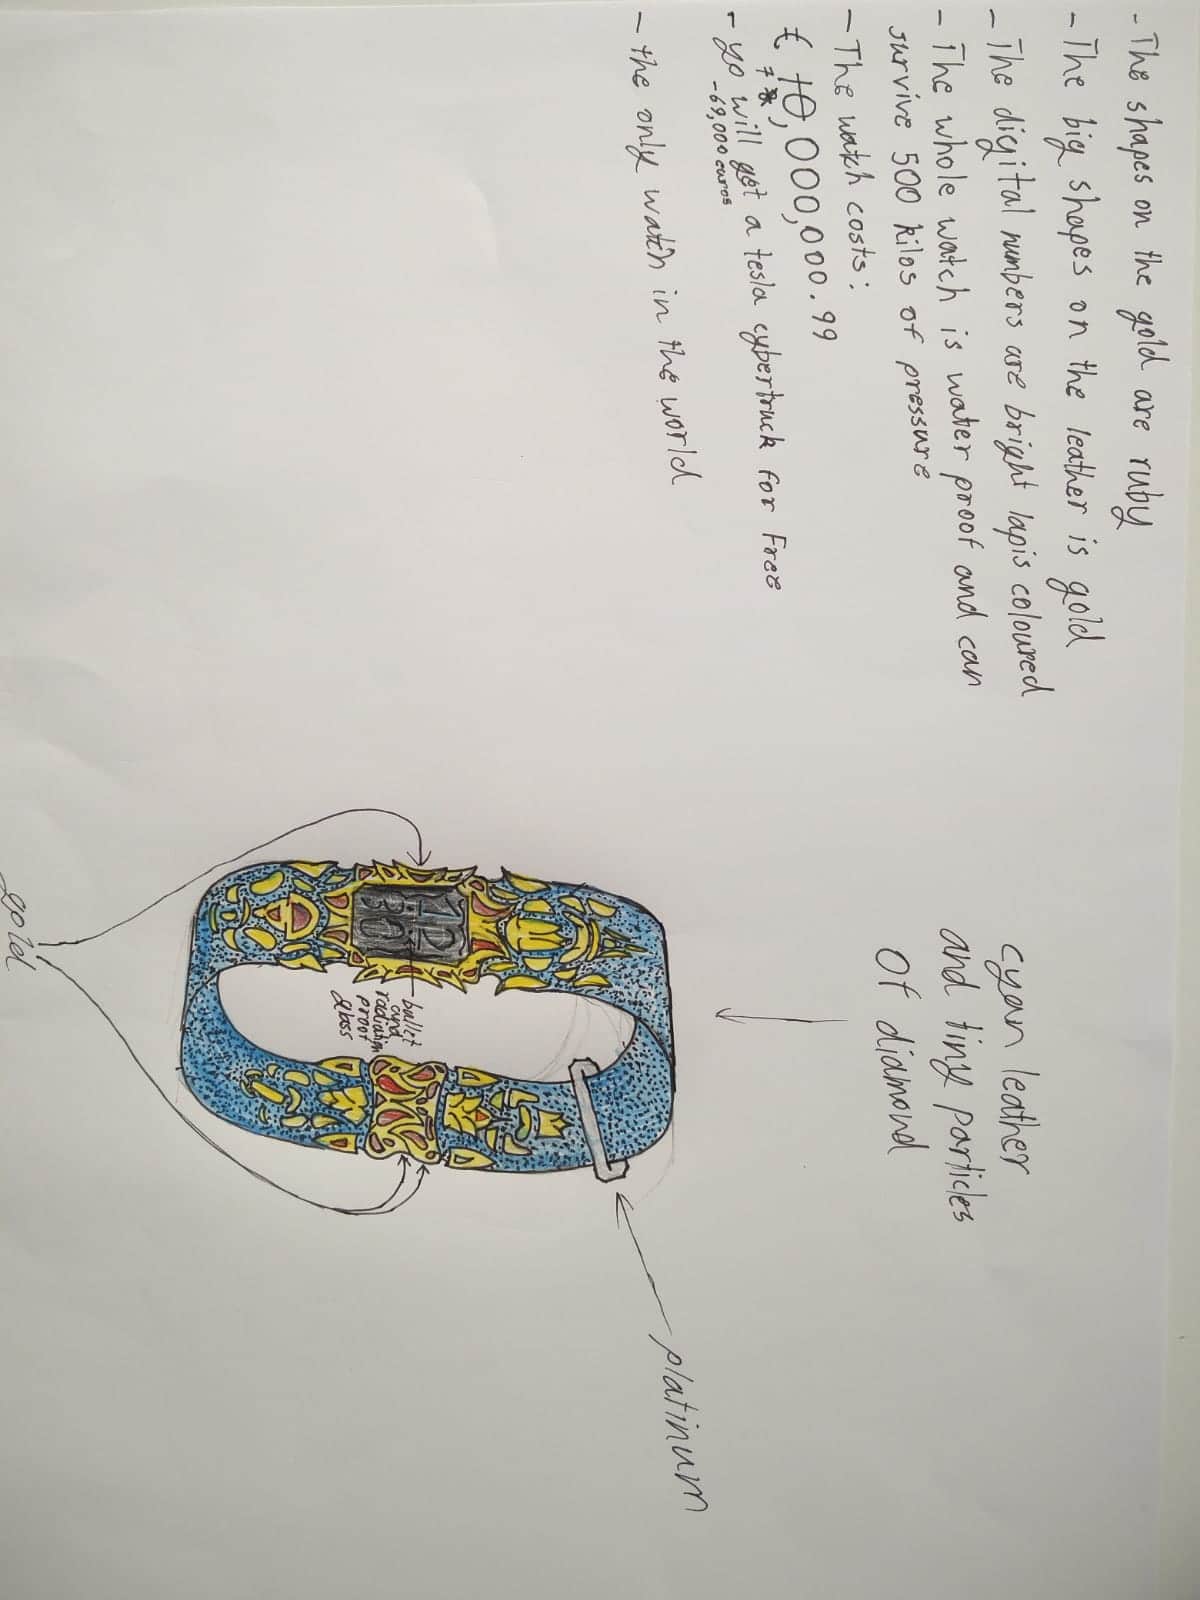 - The shapes on the gold are ruby
- The big shapes on the leather is gold
- The digital numbers are bright lapis coloured
- The whole watch is water proof and can
survive 500 kilos of pressure
- The watch costs:
€ 10,000,000.99
7
- yo will get a tesla cybertruck for free
-69,000 euros
- the only watch in the world
cyan leather
and tiny particles
of diamond
platinum
bullet
and
radiation
proof
glass
gold